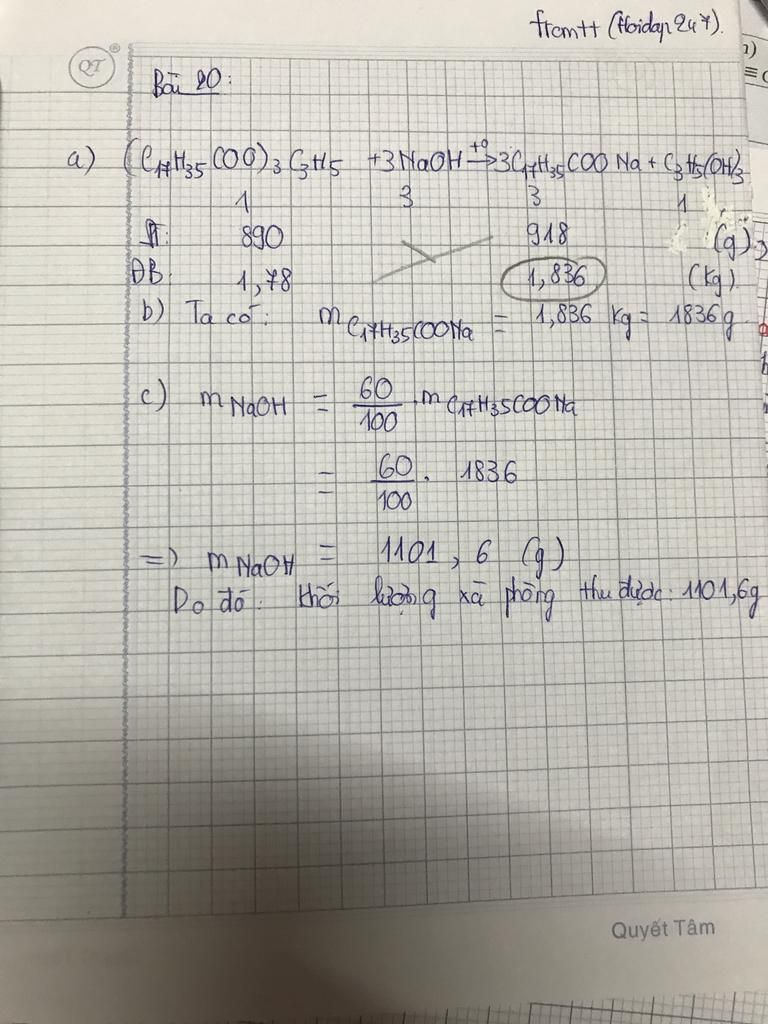 ftcmtt (Hoidap247).
QT ®
Bài 20:
a) (C17H35COO)3C3H5 +3NaOH →t° 3C17H35COONa + C3H5(OH)3
1 3 3 1
890 918 (g)
ĐB: 1,78 1,836 (kg)
b) Ta có: mC17H35COONa = 1,836 kg = 1836g
c) mNaOH = 60/100 . mC17H35COONa
= 60/100 . 1836
=) mNaOH = 1101,6 (g)
Do đó: khối lượng xà phòng thu được: 1101,6g
Quyết Tâm